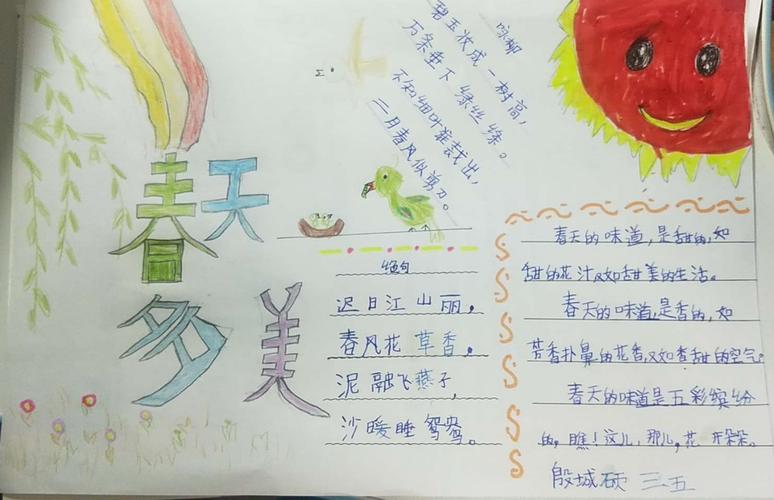 春天
多美
咏柳
碧玉妆成一树高,
万条垂下绿丝绦。
不知细叶谁裁出,
二月春风似剪刀。
绝句
迟日江山丽,
春风花草香。
泥融飞燕子,
沙暖睡鸳鸯。
春天的味道,是甜的,如
甜的花汁,又如甜美的生活。
春天的味道,是香的,如
芳香扑鼻的花香,又如香甜的空气。
春天的味道是五彩缤纷
的,瞧!这儿,那儿,花开朵朵。
殷城硕 三五